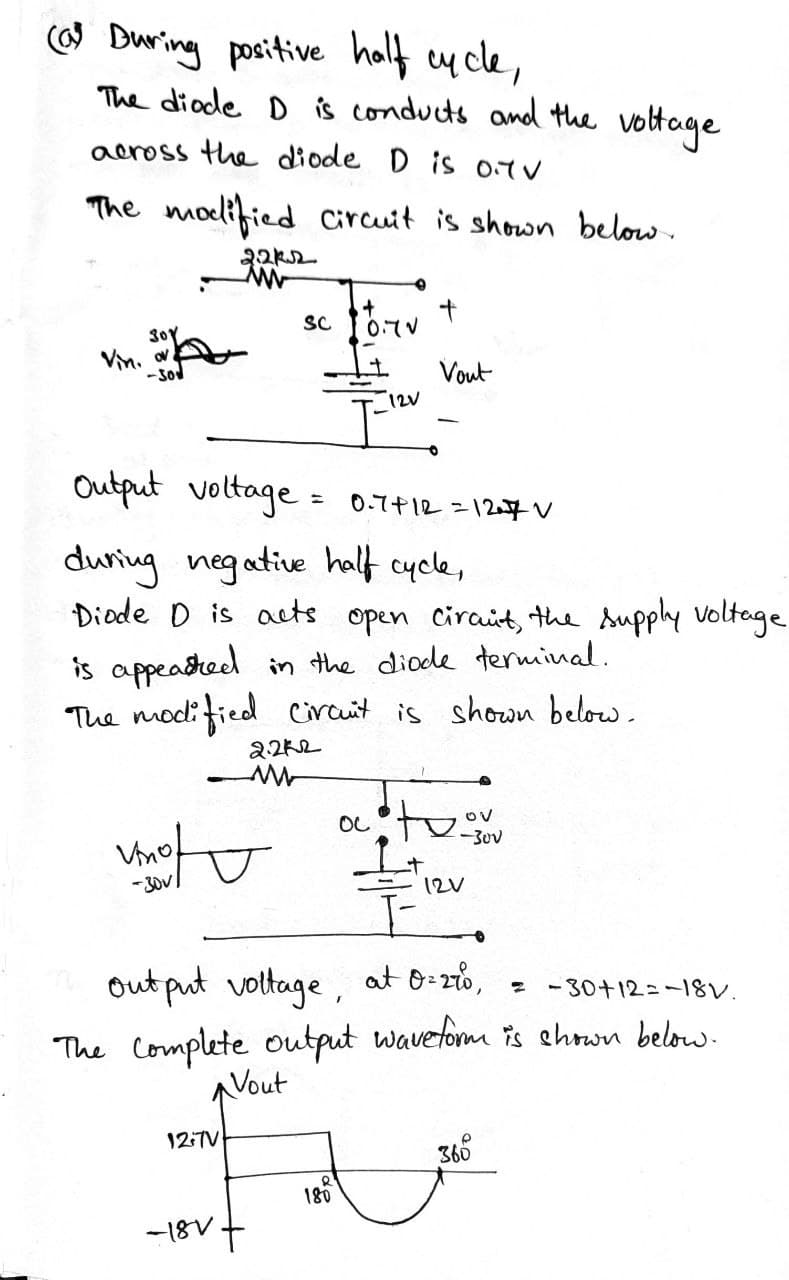 (a) During positive half cycle,
The diode D is conducts and the voltage
across the diode D is 0.7V
The modified circuit is shown below.
2.2KΩ
SC
+
0.7V
-
+
30V
Vin. 0V
-30V
+
12V
-
Vout
-
Output voltage = 0.7+12 = 12.7 V
during negative half cycle,
Diode D is acts open circuit, the supply voltage
is appeared in the diode terminal.
The modified circuit is shown below.
2.2KΩ
OC
0V
-30V
Vin 0
-30V
+
12V
-
output voltage, at θ=270°, = -30+12=-18V.
The Complete output waveform is shown below.
Vout
12.7V
360°
180°
-18V